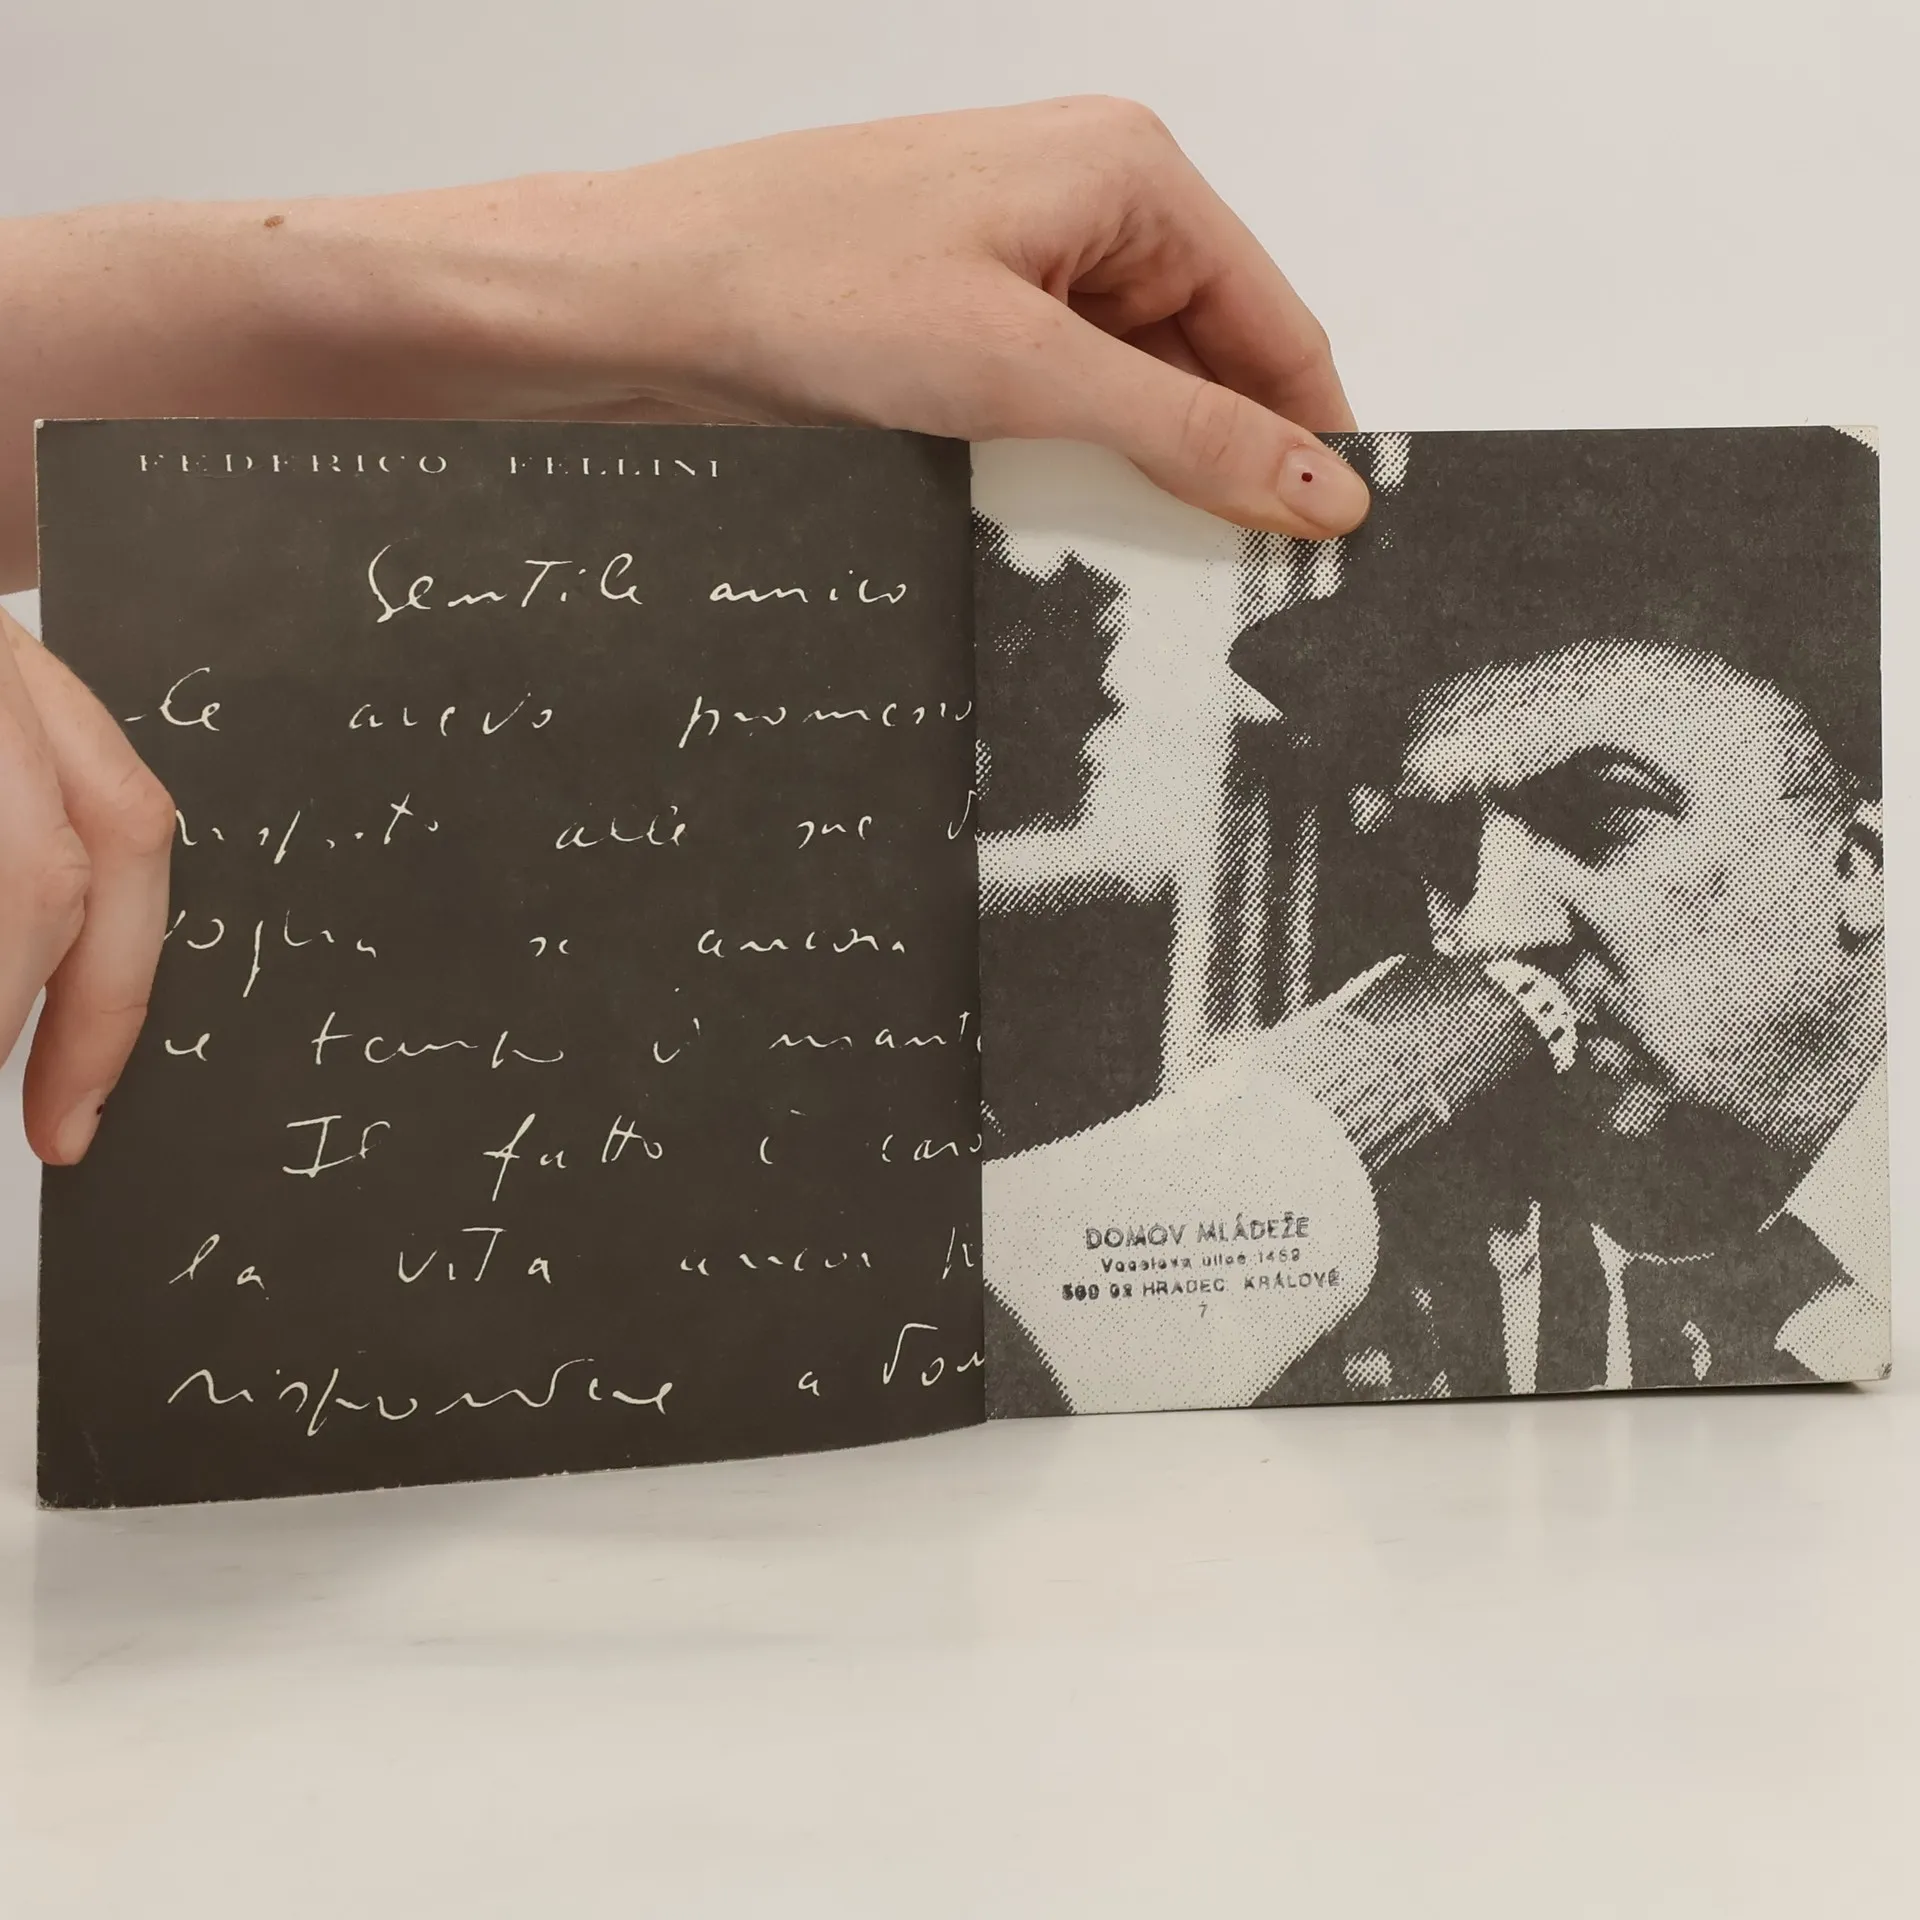 FEDERICO FELLINI
Gentile amico
Le avevo promesso
risposto alle sue
voglia se ancora
e tempo
Il fatto è
la vita ancor
rispondere a
DOMOV MLÁDEŽE
ulice
HRADEC KRÁLOVÉ
7